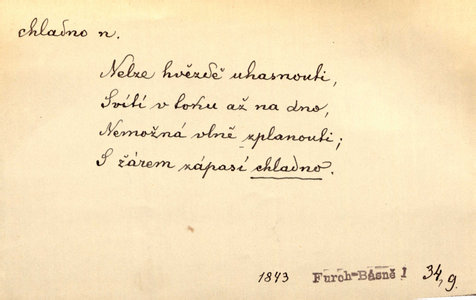 chladno n.
Nelze hvězdě uhasnouti,
Svítí v toku až na dno,
Nemožná vlně zplanouti;
S žárem zápasí chladno.
1843 Furch-Básně I 34, 9.